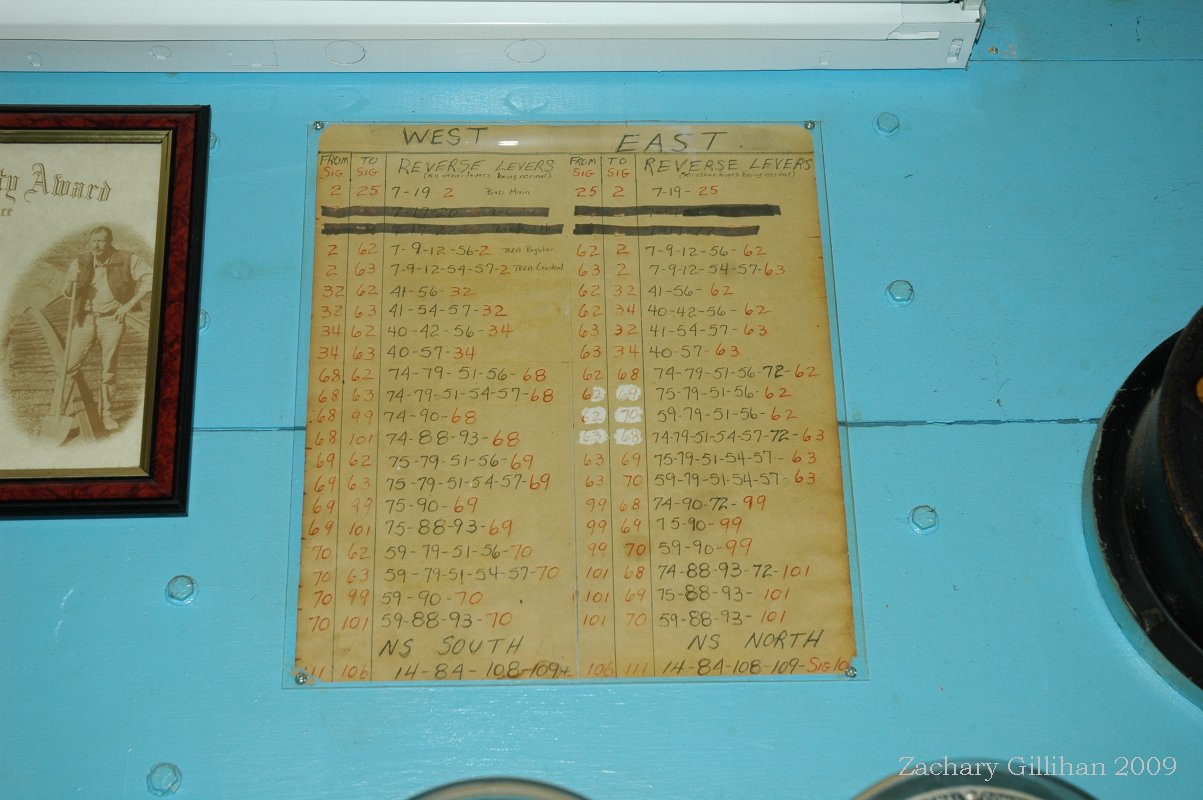 ty Award
WEST EAST
FROM SIG TO SIG REVERSE LEVERS FROM SIG TO SIG REVERSE LEVERS
(All other levers being normal) (All other levers being normal)
2 25 7-19 2 B&O Main 25 2 7-19-25
2 62 7-9-12-56-2 TRRA Regular 62 2 7-9-12-56-62
2 63 7-9-12-54-57-2 TRRA 63 2 7-9-12-54-57-63
32 62 41-56-32 62 32 41-56-62
32 63 41-54-57-32 62 34 40-42-56-62
34 62 40-42-56-34 63 32 41-54-57-63
34 63 40-57-34 63 34 40-57-63
68 62 74-79-51-56-68 62 68 74-79-51-56-72-62
68 63 74-79-51-54-57-68 62 69 75-79-51-56-62
68 99 74-90-68 62 70 59-79-51-56-62
68 101 74-88-93-68 63 68 74-79-51-54-57-72-63
69 62 75-79-51-56-69 63 69 75-79-51-54-57-63
69 63 75-79-51-54-57-69 63 70 59-79-51-54-57-63
69 99 75-90-69 99 68 74-90-72-99
69 101 75-88-93-69 99 69 75-90-99
70 62 59-79-51-56-70 99 70 59-90-99
70 63 59-79-51-54-57-70 101 68 74-88-93-72-101
70 99 59-90-70 101 69 75-88-93-101
70 101 59-88-93-70 101 70 59-88-93-101
NS SOUTH NS NORTH
111 106 14-84-108-109+ 106 111 14-84-108-109-SIG 10
Zachary Gillihan 2009